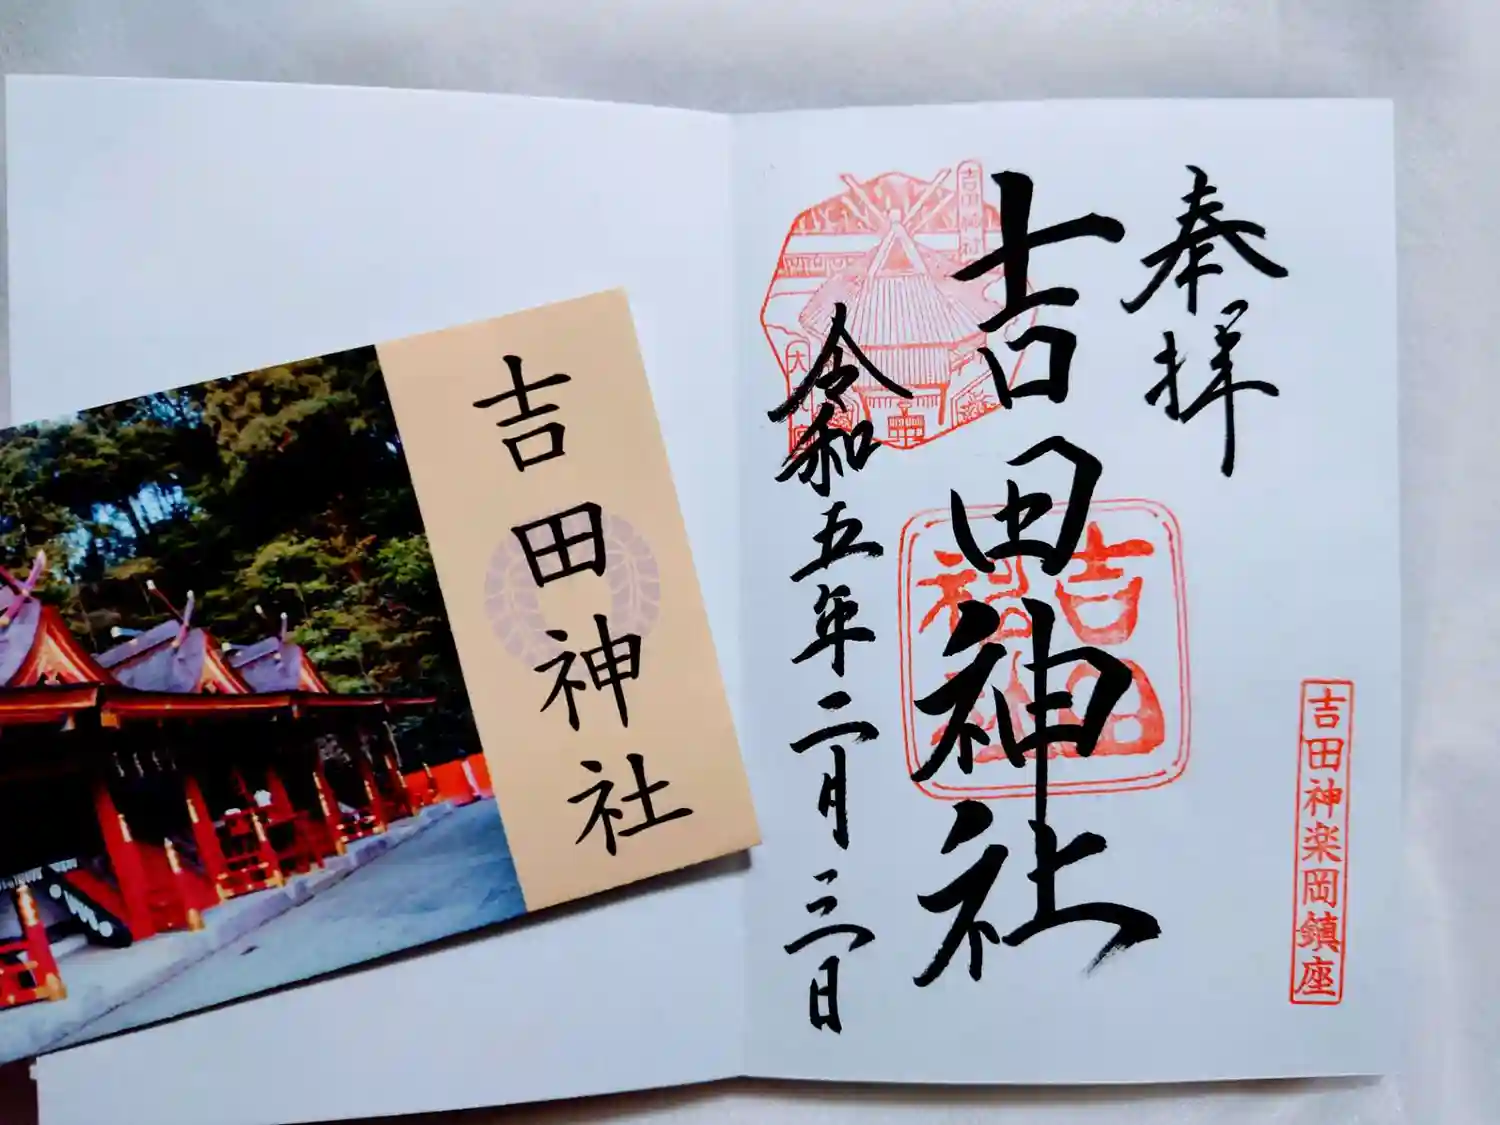 奉拝
吉田神社
令和五年二月三日
吉田神楽岡鎮座
吉田神社
吉田神社
吉田
神社